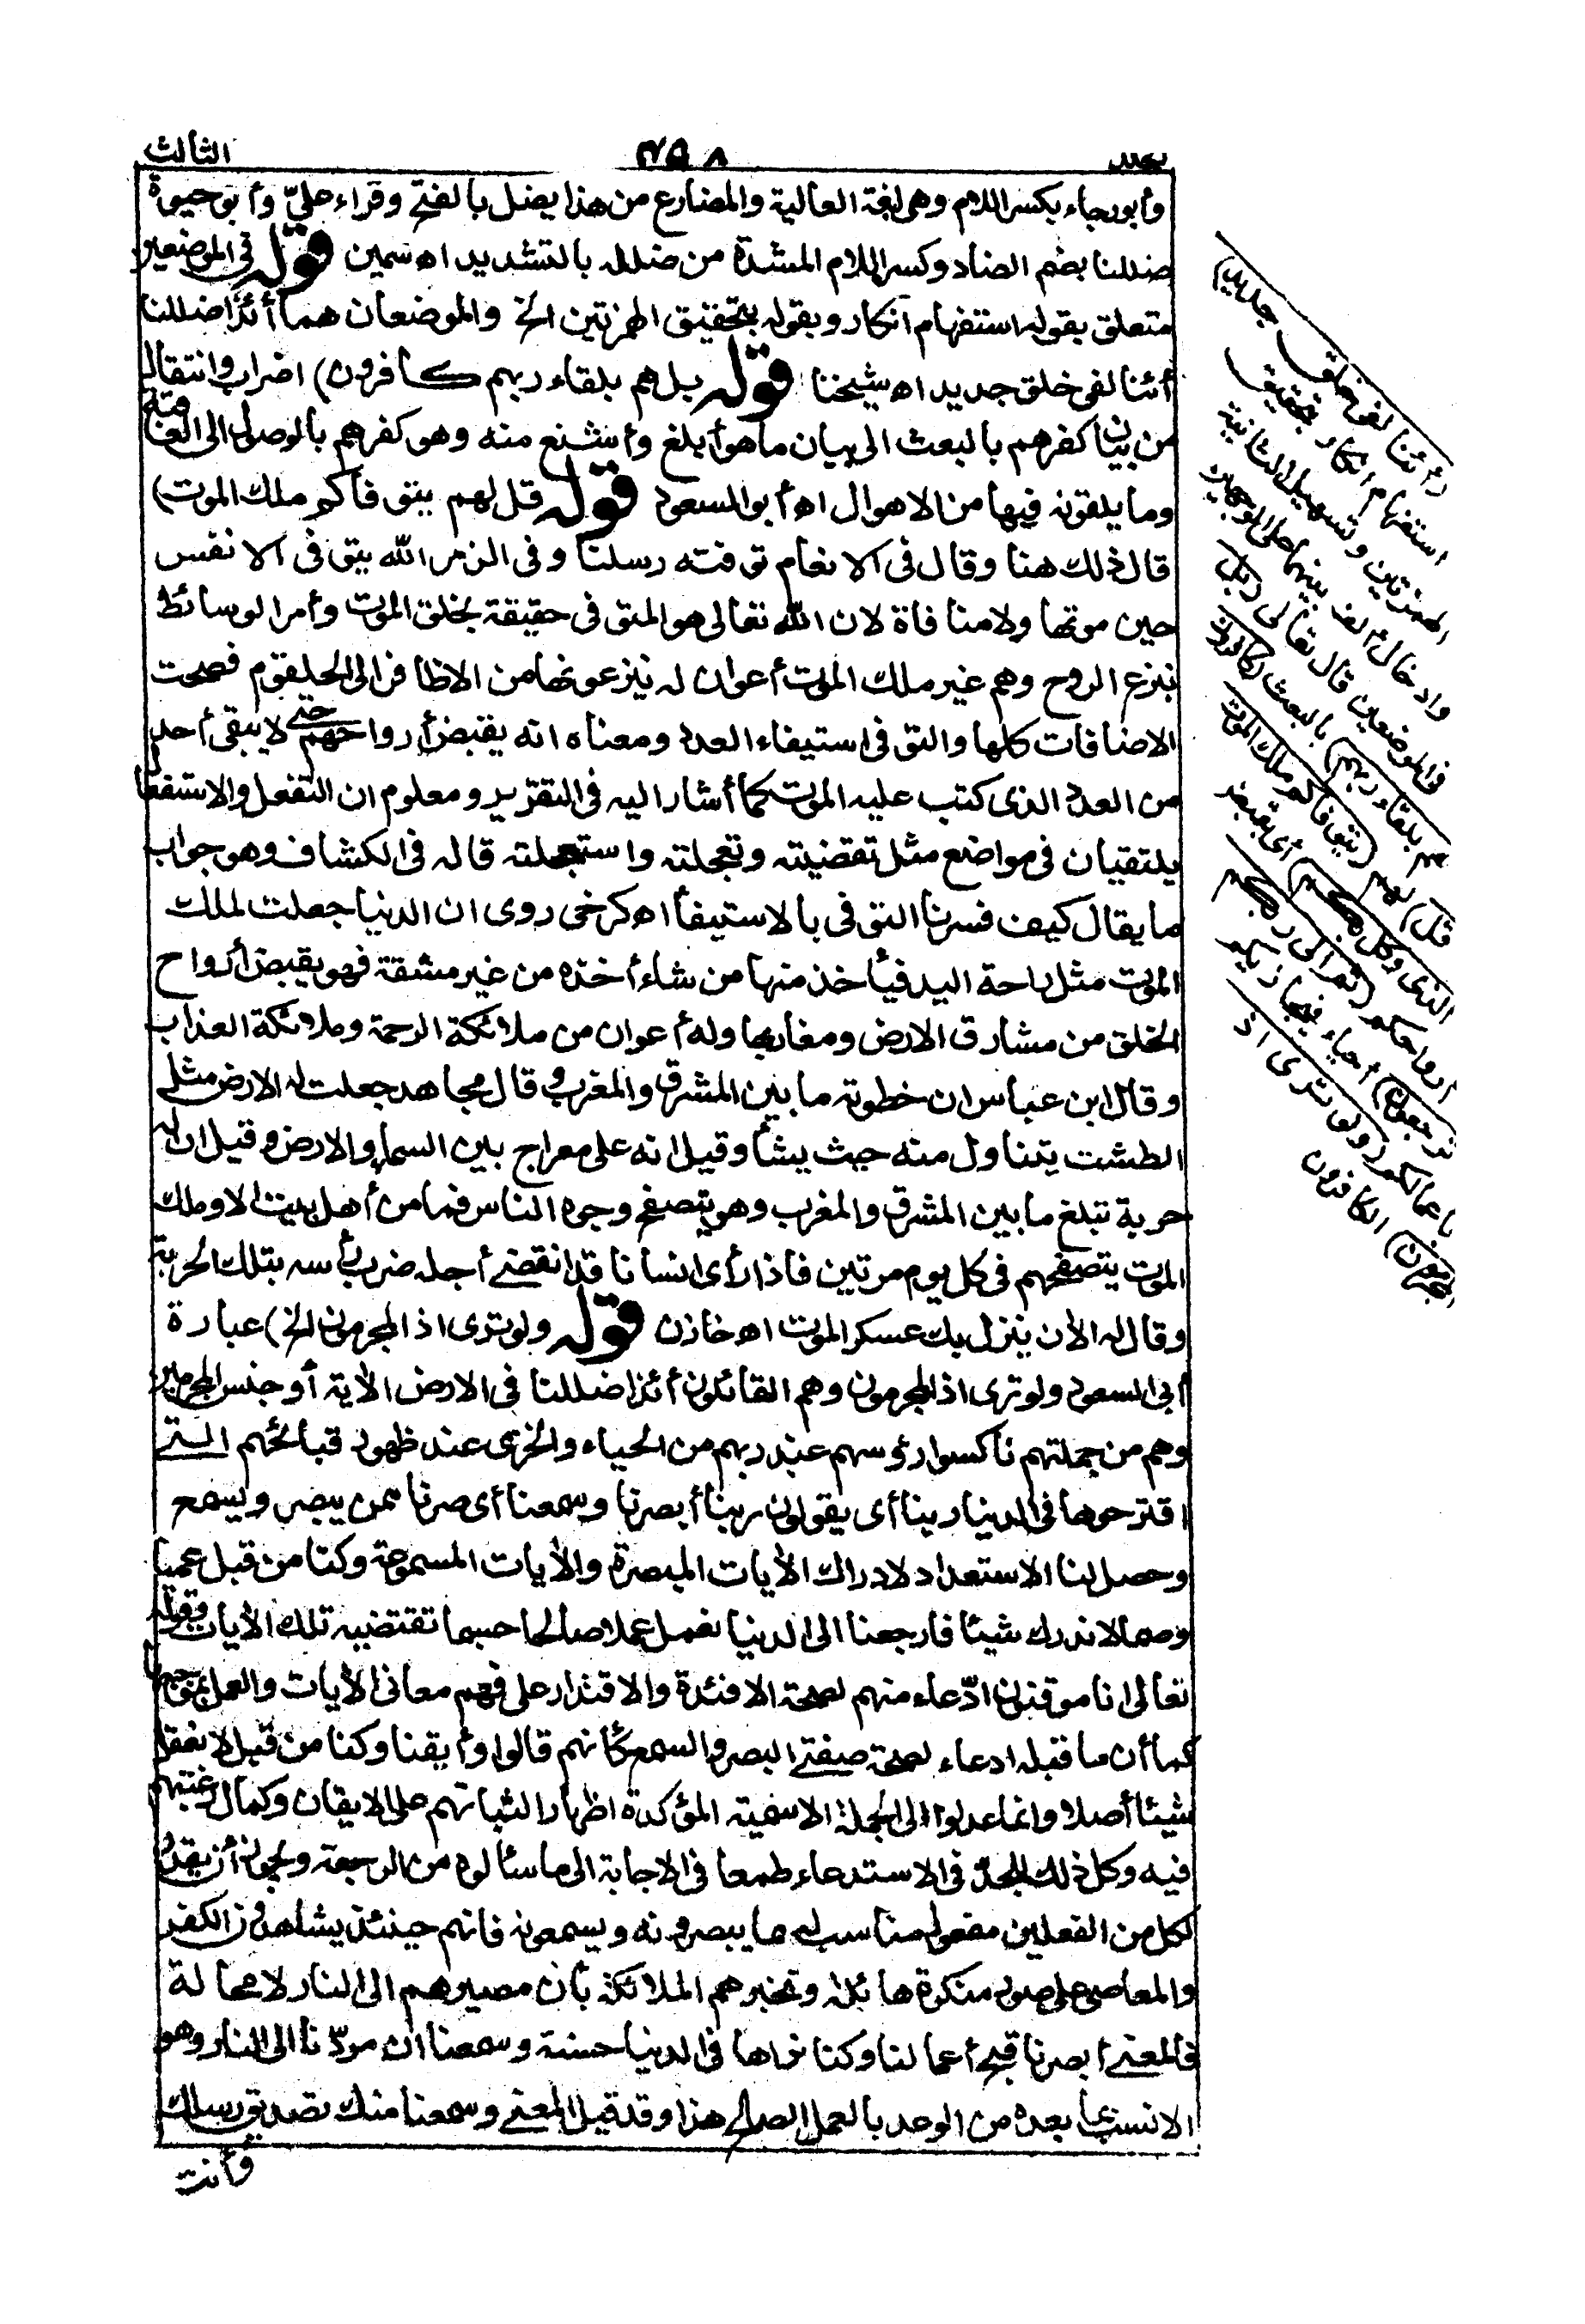 جلد ٣٥٨ الثالث
وأبورجاء بكسر اللام وهى لغة العالية والمضارع من هذا يضل بالفتح وقراء علىّ وأبو حيوة
ضللنا بضم الضاد وكسر اللام المشدة من ضلله بالتشديد اه سمين قوله فى الموضعين
متعلق بقوله استفهام انكار وبقوله بتحقيق الهمزتين الخ والموضعان هما أئذا ضللنا
أئنا لفى خلق جديد اه شيخنا قوله بل هم بلقاء ربهم كافرون) اضراب وانتقال
من بيان كفرهم بالبعث الى بيان ما هو أبلغ وأشنع منه وهو كفرهم بالوصول الى العاقبة
وما يلقونه فيها من الاهوال اه أبو السعود قوله قل لهم يتوفاكم ملك الموت)
قال ذلك هنا وقال فى الانعام توفته رسلنا وفى الزمر الله يتوفى الانفس
حين موتها ولا منافاة لان الله تعالى هو المتوفى حقيقة بخلق الموت وأمر الوسائط
بنزع الروح وهم غير ملك الموت أعوان له ينزعونها من الاظافر الى الحلقوم فصحت
الاضافات كلها والتوفى استيفاء العدد ومعناه انه يقبض أرواحهم حتى لا يبقى أحد
من العدد الذى كتب عليه الموت كما أشار اليه فى التقرير ومعلوم ان التفعل والاستفعا
يلتقيان فى مواضع مثل تقضيته وتعجلته واستعجلته قاله فى الكشاف وهو جواب
ما يقال كيف فسرنا التوفى بالاستيفا اه كرخى روى ان الدنيا جعلت لملك
الموت مثل راحة اليد فيأخذ منها من شاء أخذه من غير مشقة فهو يقبض أرواح
الخلق من مشارق الارض ومغاربها وله أعوان من ملائكة الرحمة وملائكة العذاب
وقال ابن عباس ان خطوته ما بين المشرق والمغرب وقال مجاهد جعلت له الارض مثل
الطشت يتناول منه حيث يشأ وقيل انه على معراج بين السماء والارض وقيل ان له
حربة تبلغ ما بين المشرق والمغرب وهو يتصفح وجوه الناس فما من أهل بيت الا وملك
الموت يتصفحهم فى كل يوم مرتين فاذا رأى انسانا قد انقضى أجله ضرب رأسه بتلك الحربة
وقال له الأن ينزل بك عسكر الموت اه خازن قوله ولو ترى اذ المجرمون الخ) عبارة
أبى السعود ولو ترى اذ المجرمون وهم القائلون أئذا ضللنا فى الارض الأية أو جنس المجرمين
وهم من جملتهم ناكسوا رؤسهم عند ربهم من الحياء والخزى عند ظهور قبائحهم التى
اقترحوها فى الدنيا ربنا أى يقولون ربنا أبصرنا وسمعنا أى صرنا ممن يبصر ويسمع
وحصل لنا الاستعداد لادراك الأيات المبصرة والأيات المسموعة وكنا من قبل عميا
وصما لا ندرك شيئا فارجعنا الى الدنيا نعمل عملا صالحا حسبما تقتضيه تلك الأيات وقوله
تعالى انا موقنون ادّعاء منهم لصحة الافئدة والاقتدار على فهم معانى الأيات والعمل بموجبها
كما أن ما قبله ادعاء لصحة صفتى البصر والسمع كأنهم قالوا وأيقنا وكنا من قبل لا نعقل
شيئا أصلا وانما عدلوا الى الجملة الاسمية المؤكدة اظهارا لثباتهم على الايقان وكمال رغبتهم
فيه وكل ذلك للجدّ فى الاستدعاء طمعا فى الاجابة الى ما سألوه من الرجعة ويجوز أن يقدر
لكل من الفعلين مفعول مناسب له مما يبصرونه ويسمعونه فانهم حينئذ يشاهدون الكفر
والمعاصى على صور منكرة هائلة وتخبرهم الملائكة بأن مصيرهم الى النار لا محالة
فالمعنى أبصرنا قبح أعمالنا وكنا نراها فى الدنيا حسنة وسمعنا ان مردّنا الى النار وهو
الانسب بما بعده من الوعد بالعمل الصالح هذا وقد قيل المعنى وسمعنا منك تصديق رسلك
وأنت
(أئنا لفى خلق جديد)
استفهام انكار بتحقيق
الهمزتين وتسهيل الثانية
وادخال ألف بينهما على الوجهين
فى الموضعين قال تعالى (بل
هم بلقاء ربهم) بالبعث (كافرون
قل) لهم (يتوفاكم ملك الموت
الذى وكل بكم) أى بقبض
أرواحكم (ثم الى ربكم
ترجعون) احياء فيجازيكم
باعمالكم (ولو ترى اذ
المجرمون) الكافرون